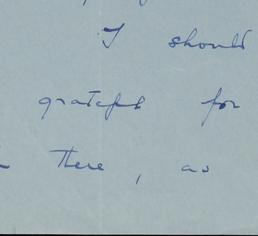 I should
grateful for
there, as